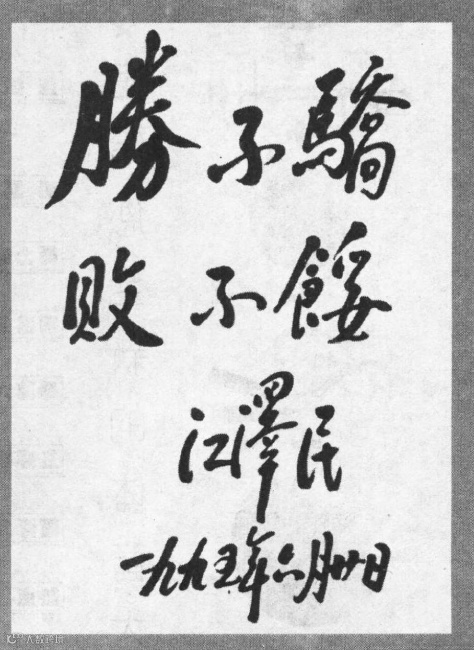 勝不驕
敗不餒
江澤民
一九九五年六月廿日